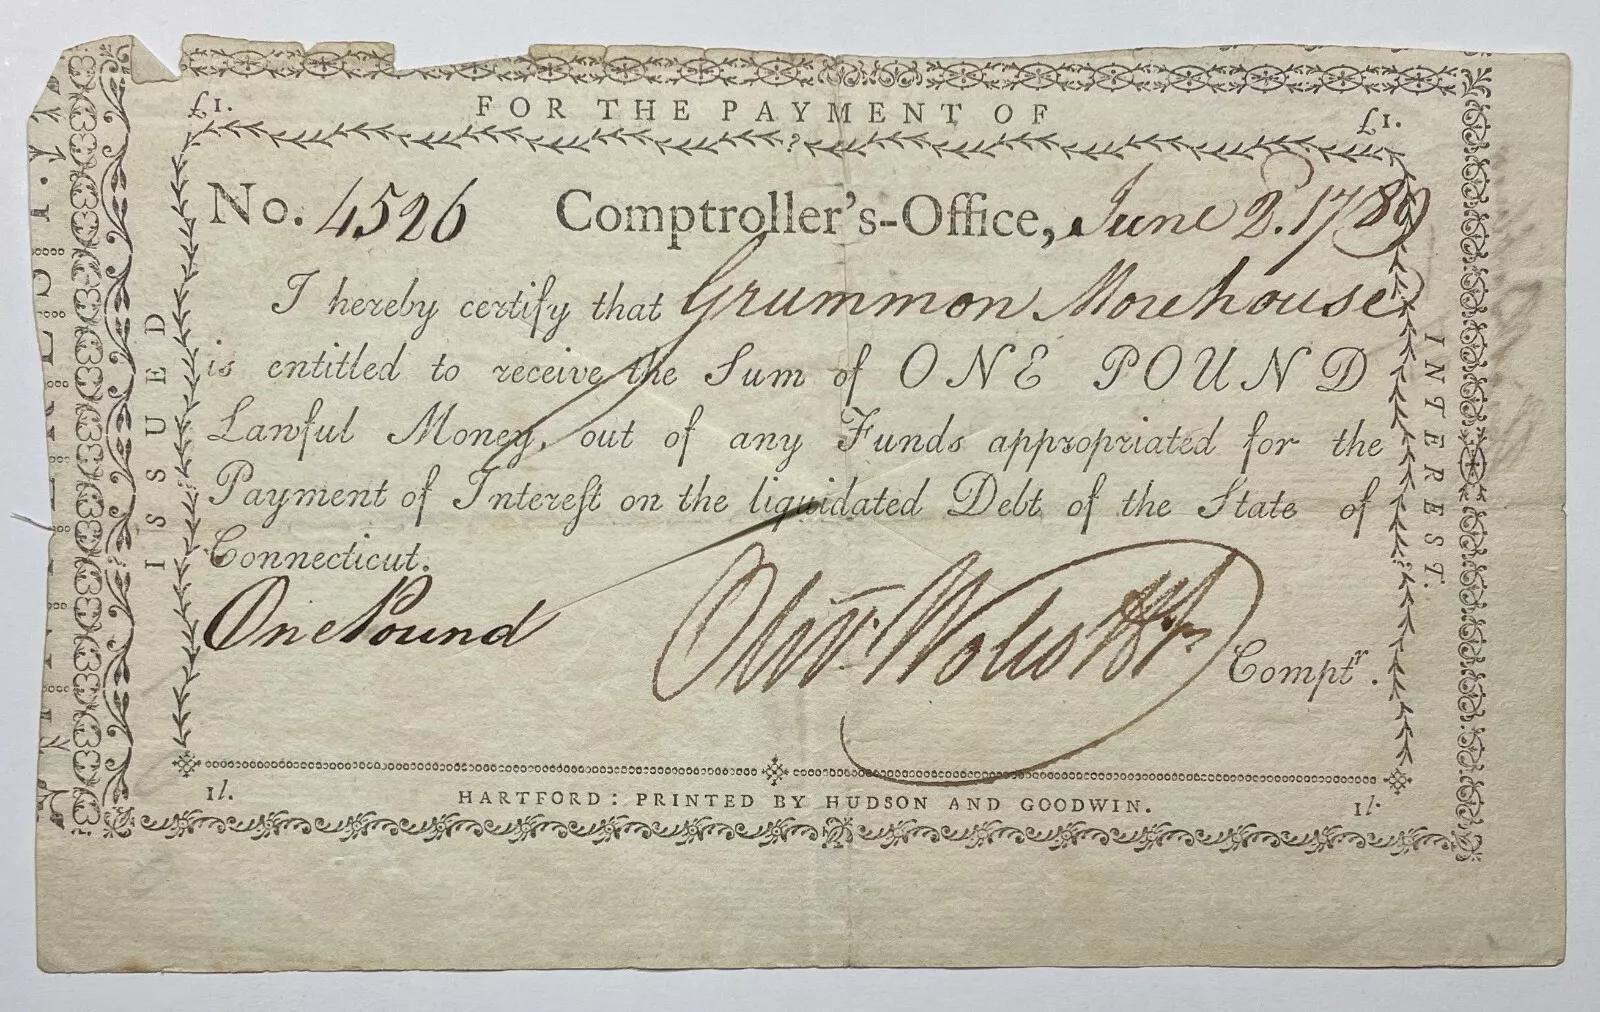 £1. FOR THE PAYMENT OF £1.
No. 4526 Comptroller's-Office, June 2. 1789
I hereby certify that Grummon Morehouse
is entitled to receive the Sum of ONE POUND
Lawful Money, out of any Funds appropriated for the
Payment of Intereſt on the liquidated Debt of the State of
Connecticut.
One Pound
Olivr. Wolcott Jr. Comptr.
1l. HARTFORD: PRINTED BY HUDSON AND GOODWIN. 1l.
ISSUED
INTEREST.